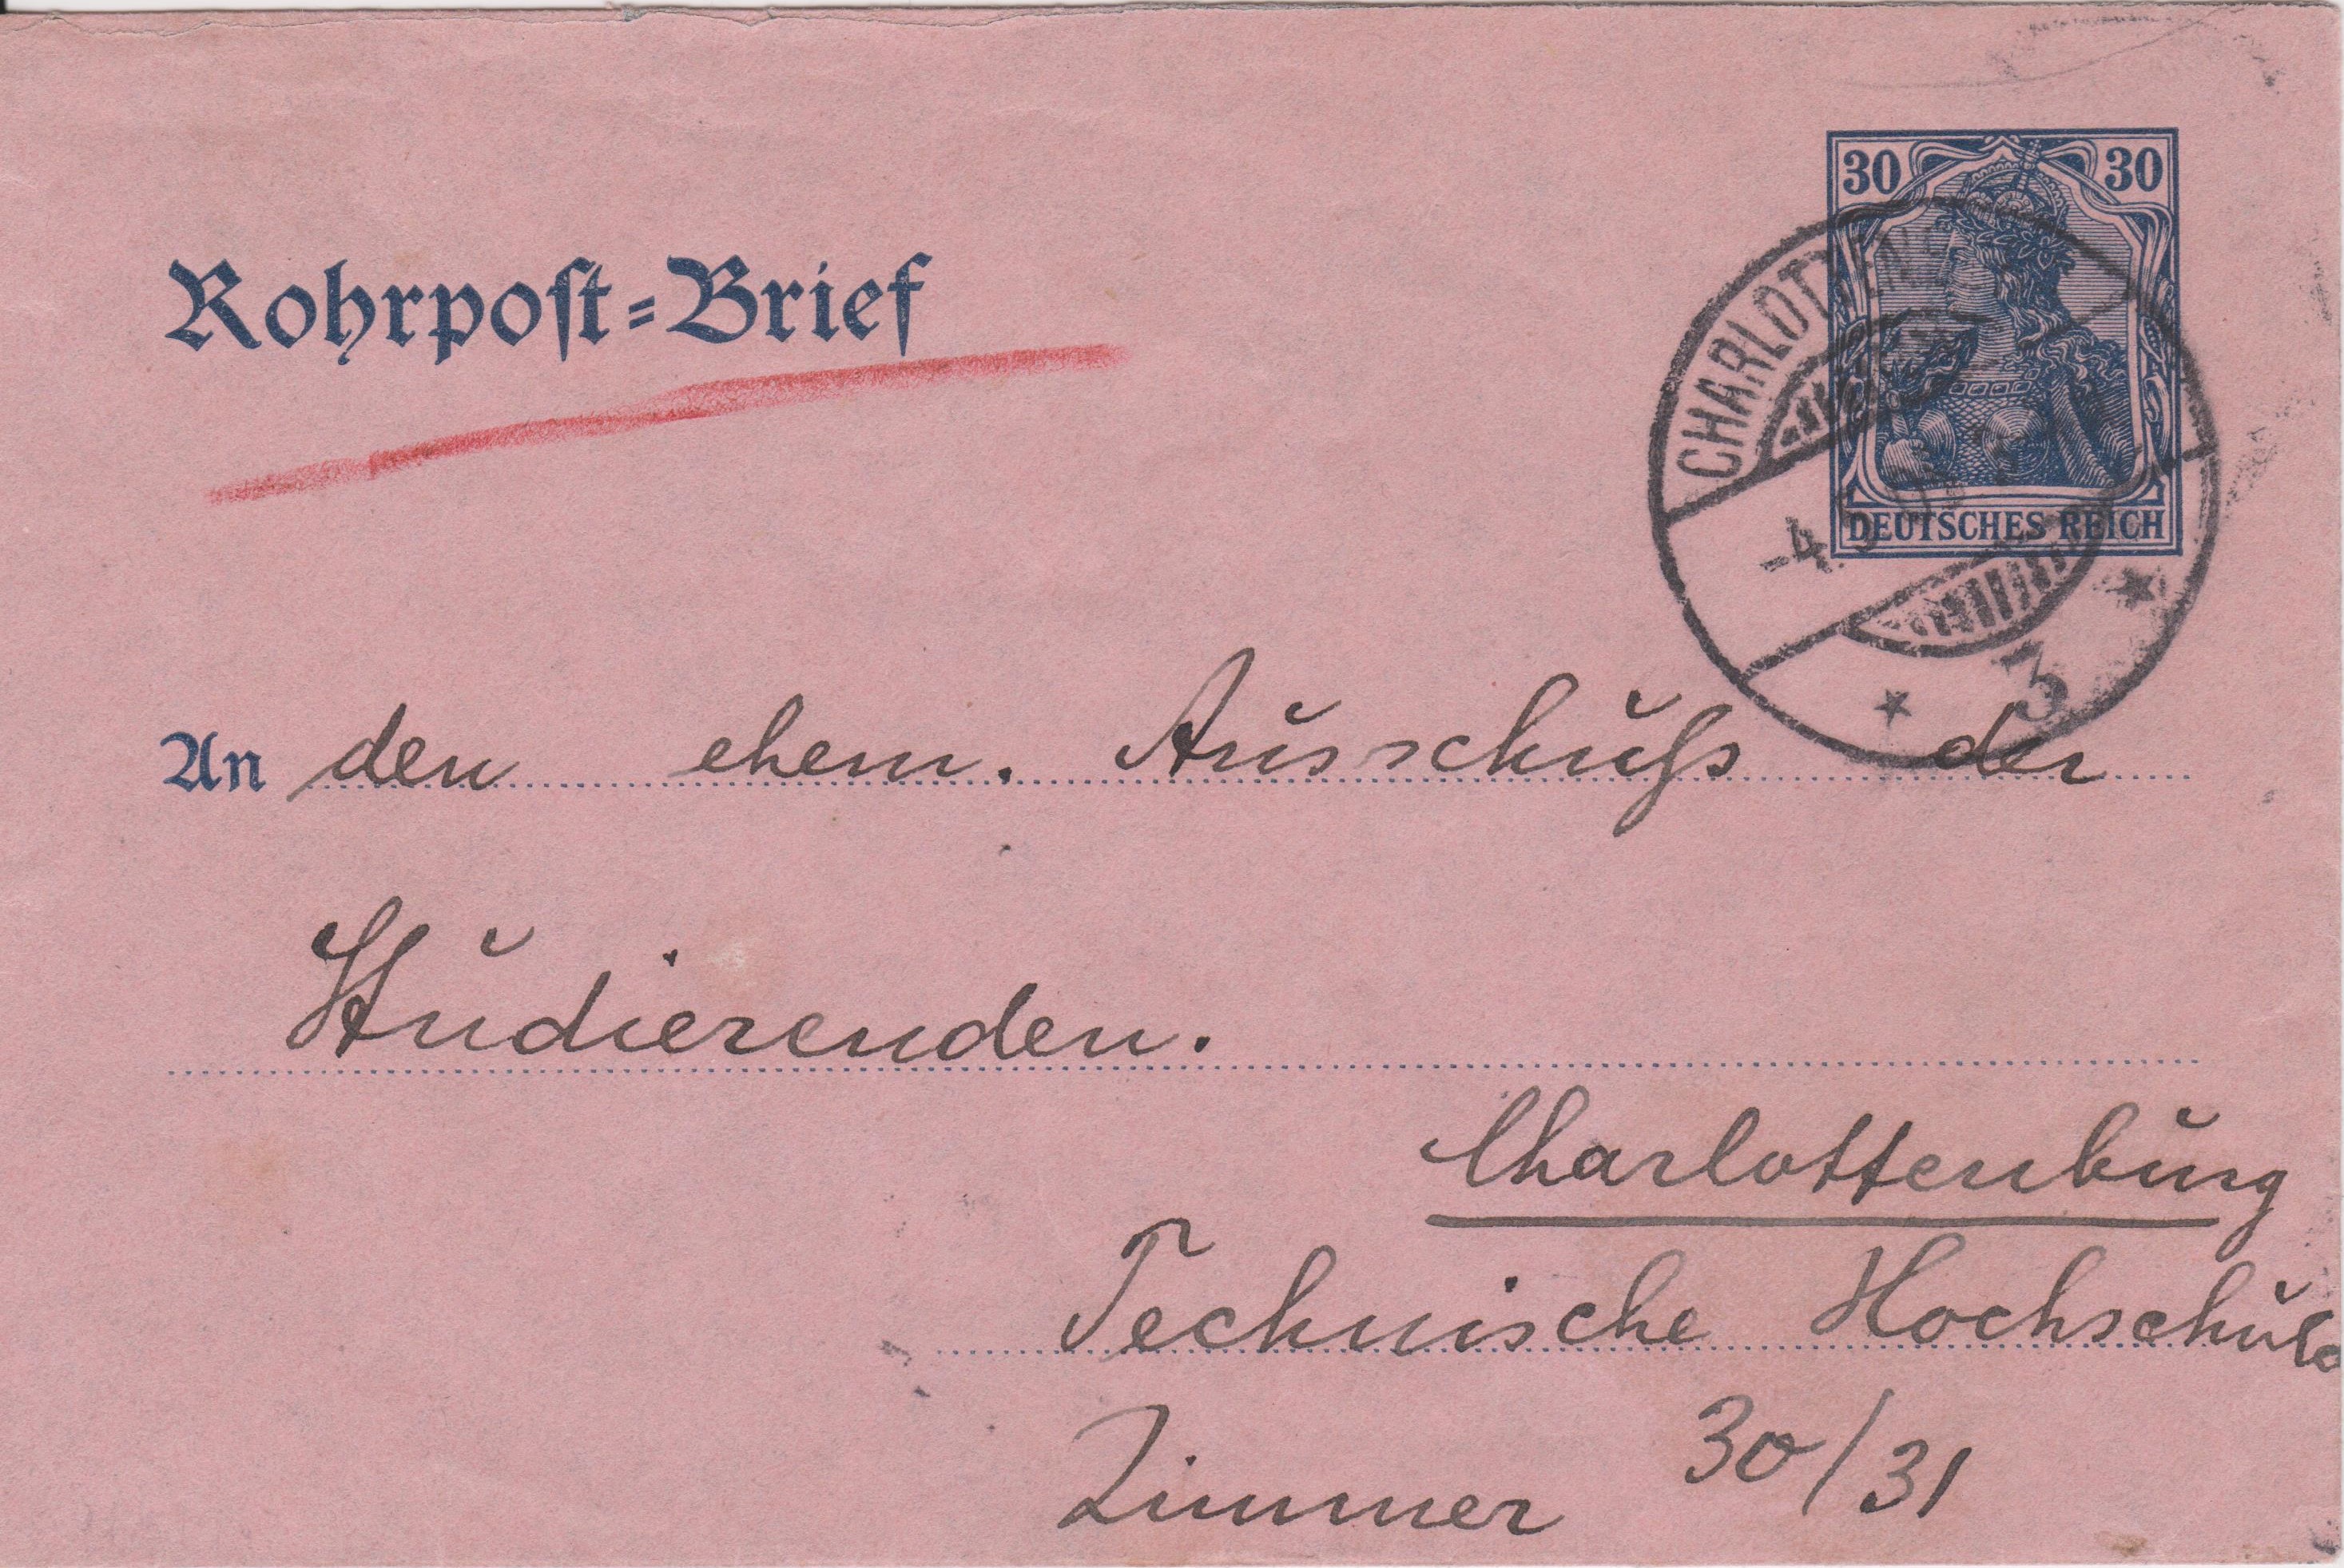 30 30
DEUTSCHES REICH
CHARLOTTENB
-4.
* 3 *
Rohrpoſt=Brief
An den ehem. Ausschuß der
Studierenden.
Charlottenburg
Technische Hochschule
Zimmer 30/31